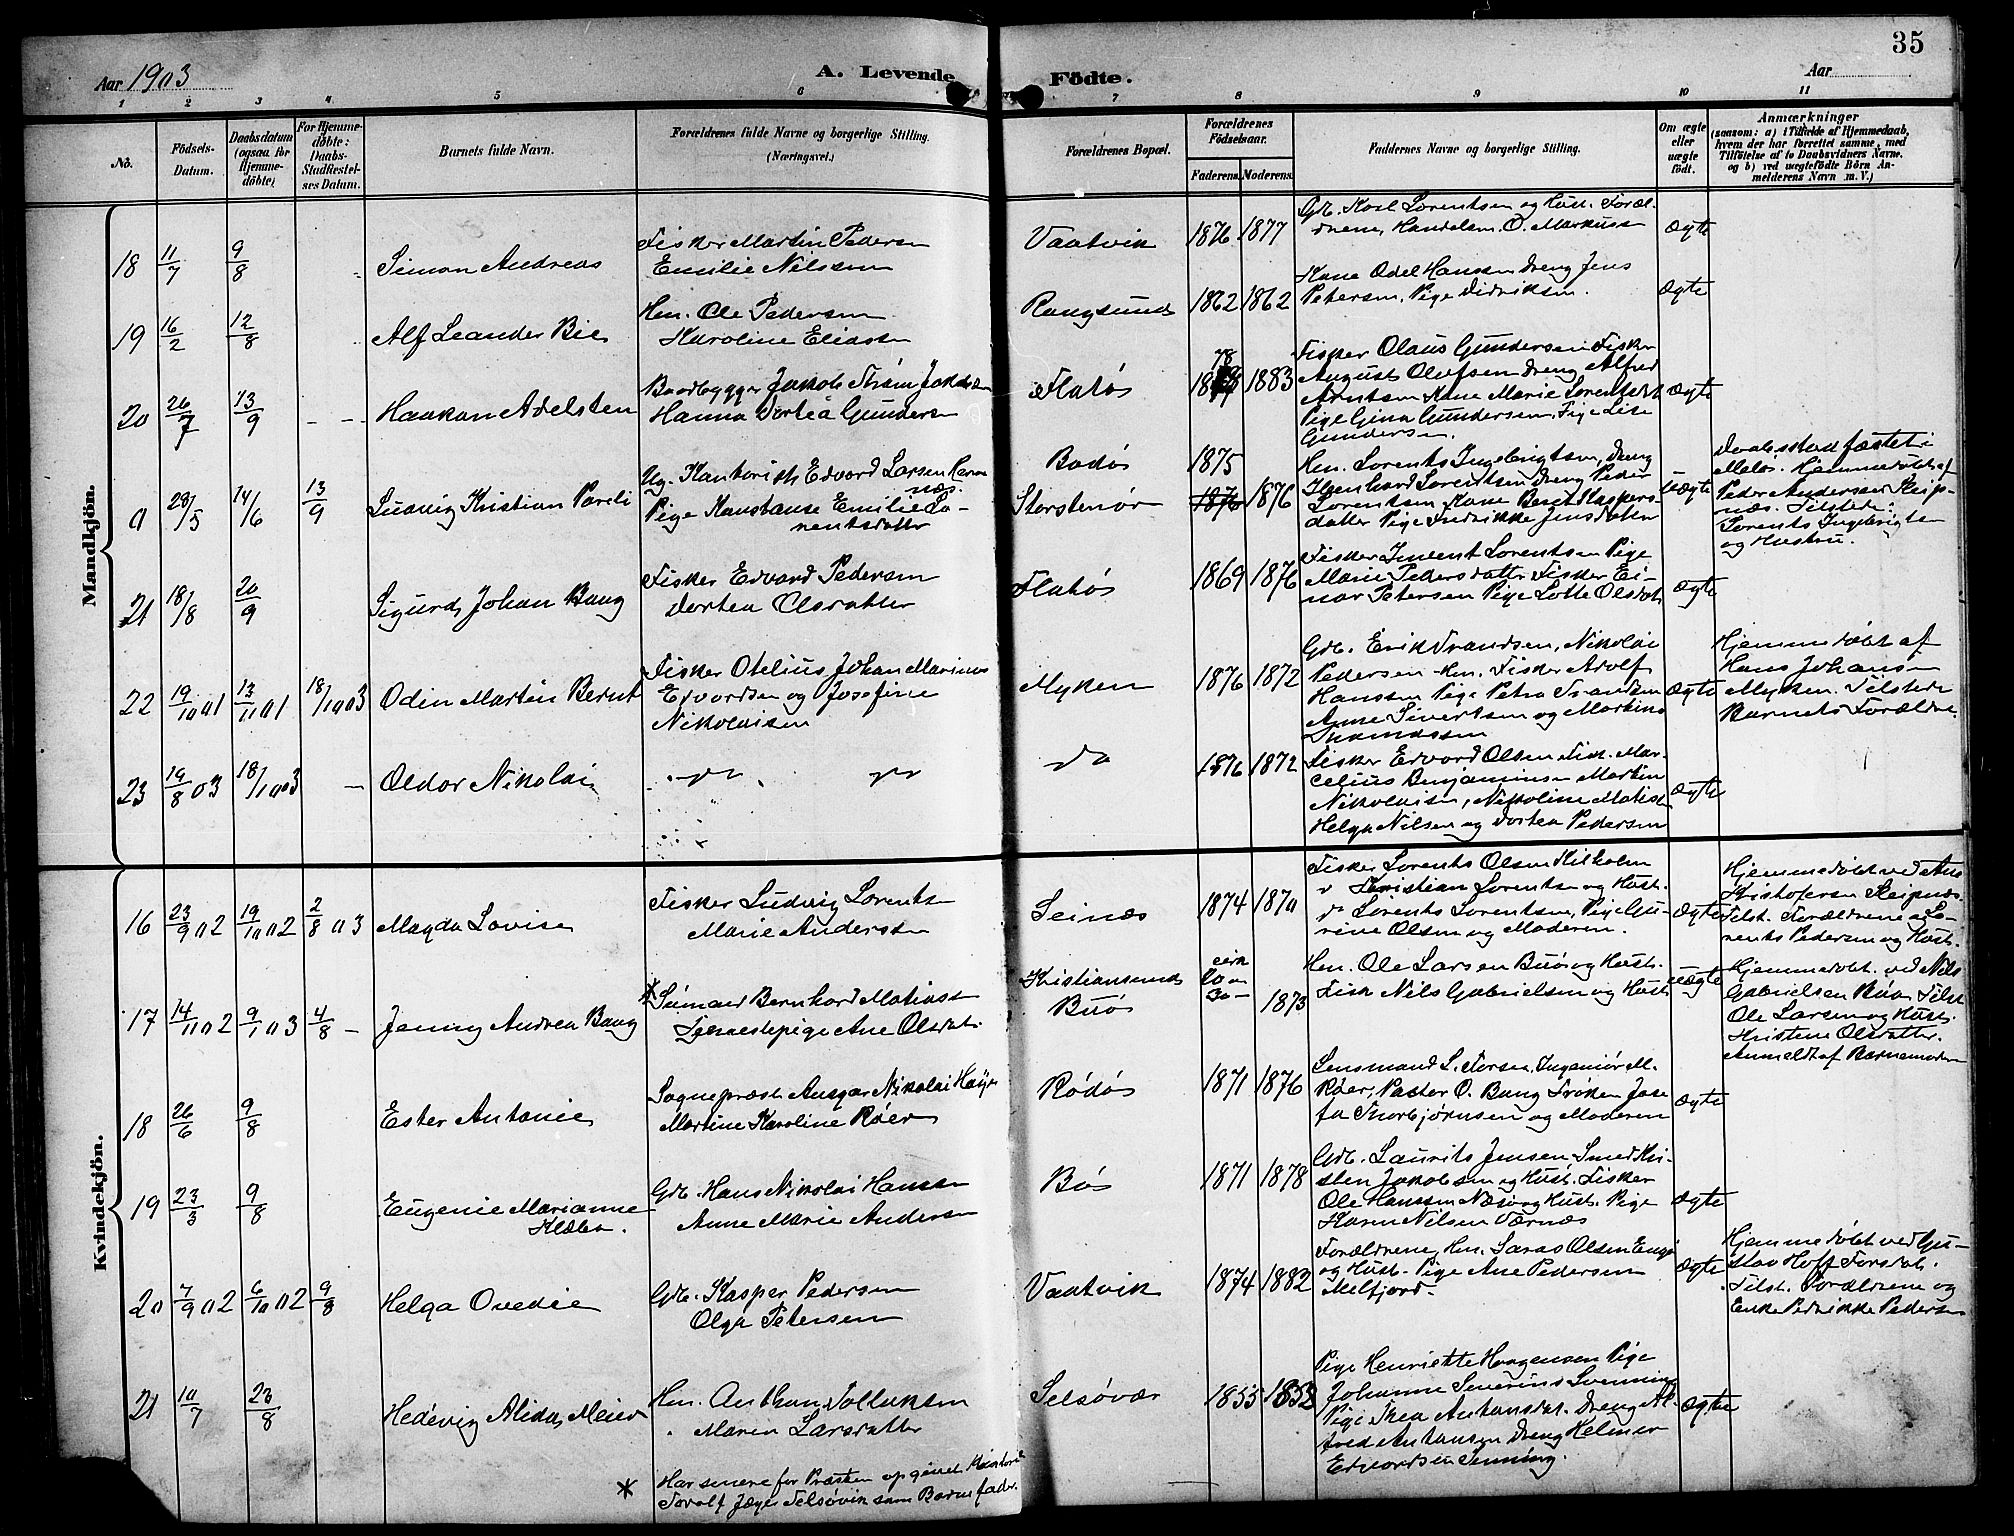 35
Aar 1903
A. Levende Födte.
Aar
1 2 3 4 5 6 7 8 9 10 11
No.
Födsels-
Datum.
Daabsdatum
(ogsaa for
Hjemme-
döbte)
For Hjemme-
döbte:
Daabs-
Stadfæstel-
ses Datum.
Barnets fulde Navn.
Forældrenes fulde Navne og borgerlige Stilling.
(Næringsvei.)
Forældrenes Bopæl.
Forældrenes
Födselsaar.
Faderens. Moderens.
Faddernes Navne og borgerlige Stilling.
Om ægte
eller
uægte
födt.
Anmærkninger
(saasom: a) i Tilfælde af Hjemmedaab,
hvem der har forrettet samme, med
Tilföielse af to Daabsvidners Navne,
og b) ved uægtefödte Börn An-
melderens Navn m. V.)
Mandkjön.
18 11/7 9/8 Simon Andreas
Fisker Martin Pedersen
Emilie Nilssen
Vaatvik 1876 1877
Gdb. Karl Lorentsen og Hust. Foræl-
drene, Handelsm. O. Markussen
ægte
19 16/2 12/8 Alf Leander Bie
Hm. Ole Pedersen
Karoline Eliassen
Rangsund 1862 1862
Kone Odel Hanssen Dreng Jens
Petersen, Pige Didriksen.
ægte
20 26/7 13/9 - -- Haakon Adelsten
Baadbygger Jakob Strøm Jakobsen
Hanna Dortea Gundersen
Flatøs 78 1883
Fisker Olaus Gundersen Fisker
August Olufsen Dreng Alfred
Arntsen Kone Marie Lorentsdt
Pige Gina Gundersen, Pige Lise
Gundersen.
ægte
0 28/5 14/6 13/9 Ludvig Kristian Pareli
Ug. Kontorist Edvard Larsen
næs.
Pige Konstanse Emilie Lo-
rentsdatter
Bodøs 1875
Storstenør 1876 1876
Hm. Lorents Ingebrigtsen, Dreng
Ingenhard Lorentsen Dreng Peder
Lorentsen Kone Berit Kaspers-
datter Pige Fredrikke Jensdatter
uægte
Daabsstadfæstet i
Meløs. Hjemmedøbt af
Peder Andersen Skeip-
næs. Tilstede:
Lorents Ingebrigtsen
og Hustru.
21 18/8 20/9 Sigurd Johan Bang
Fisker Edvard Pedersen
Dortea Olsdatter
Flatøs 1869 1876
Fisker Lorentsen Pige
Marie Pedersdatter Fisker Ei-
nar Petersen Pige Lotte Olsdat.
ægte
22 19/10 01 13/11 01 18/10 03 Odin Martin Bernt
Fisker Otelius Johan Marinus
Edvardsen og Josefine
Nikolaisen
Myken 1876 1872
Gdb. Erik Svendsen, Nikolai
Pedersen Hm. Fisker Adolf
Hanssen Pige Petra Svendsen
Anne Sivertsen og Martine
Thomassen
ægte
Hjemmedøbt af
Hans Johansen
Myken. Tilstede
Barnets Forældre.
23 19/8 03 18/10 03 - Oldor Nikolai
do 1876 1872
Fisker Edvard Olsen Fisk. Mar-
celius Benjaminsen Martin
Nikolaisen, Nikoline Matiss.
Helga Nilsen og Dortea Pedersen
ægte
Kvindekjön.
16 23/9 02 19/10 02 2/8 03 Magda Lovise
Fisker Ludvig Lorentsen
Marie Anderssen
Seinæs 1874 1870
Fisker Lorents Olsen Kilholm
v Kristian Lorentsen og Hust.
do Lorents Lorentsen, Pige Gu-
rine Olsen og Moderen.
ægte
Hjemmedøbt ved Ane
Kristofersen Skeipnæs
Tilst. Forældrene og Lo-
rents Pedersen og Hust.
17 14/11 02 9/1 03 4/8 - Jenny Andrea Bang
* Sømand Bernhard Matiassen
Tjenestepige Ane Olsdat.
Kristiansund
Buø
cirk
20 a
30 - 1873
Hm. Ole Larsen Buø og Hust.
Fisk Nils Gabrielsen og Hust
uægte
Hjemmedøbt ved Nils
Gabrielsen Buø. Tilst
Ole Larsen og Hust.
Kristine Olsdatter.
Anmeldt af Barnemoder
18 26/6 9/8 Ester Antonie
Sogneprest Ansgar Nikolai Høyer
Martine Karoline Røer
Rødøs 1871 1876
Lensmand L. Torsen, Ingeniør M.
Røer, Pastor O. Bang Frøken Jose
fa Thorbjørnsen og Moderen
ægte
19 23/3 9/8 Eugenie Marianne
Klæbo.
Gdb. Hans Nikolai Hansen
Anne Marie Andersen
Bøs 1871 1878
Gdb. Laurits Jensen Smed Kri-
sten Jakobsen og Hust. Fisker
Ole Hanssen Næsø og Hust. Pige
Karen Nilsen Værnæs
ægte
20 7/9 02 6/10 02 9/8 Helga Ovedie
Gdb. Kasper Pedersen
Olga Petersen
Vaatvik 1874 1882
Forældrene, Hm. Saras Olsen Engø
og Hust. Pige Ane Pedersen
Skelfjord.
ægte
Hjemmedøbt ved Gu-
stav Hoff Forsdal.
Tilst. Forældrene og
Enke Pedrikke Pedersen
21 10/7 23/8 Hedevig Alida Meier
Hm. Anthon Tollaksen
Maren Larsdatter
Selsøvær 1855 1853
Pige Henriette Haagensen Pige
Johanne Severine Svenning
Pige Thea Antonsdat. Dreng Al-
fred Antonsen Dreng Helmer
Edvardsen Svenning.
ægte
* Har senere for Præsten opgivet
Torolf Jæger Selsøvik som Barnefader.